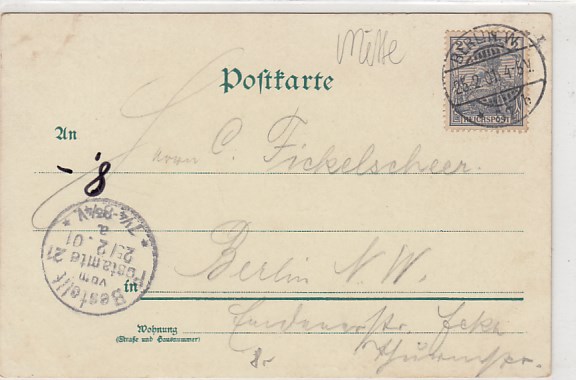 Mitte
BERLIN W.
25.2.01. 4-5V.
REICHSPOST
Postkarte
An
Herrn C. Fickelscheer.
- 8
Bestellt
vom
Postamte 21
25/2.01
a.
* 7¼-8¾V *
in Berlin N. W.
Wohnung
(Straße und Hausnummer)
Ecke
Thurmstr.
8.-